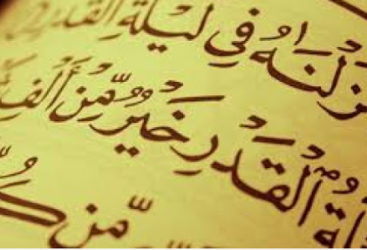 زَلْنَٰهُ فِي لَيْلَةِ الْقَدْرِ
لَةُ الْقَدْرِ خَيْرٌ مِّنْ أَلْفِ
مِّن كُ